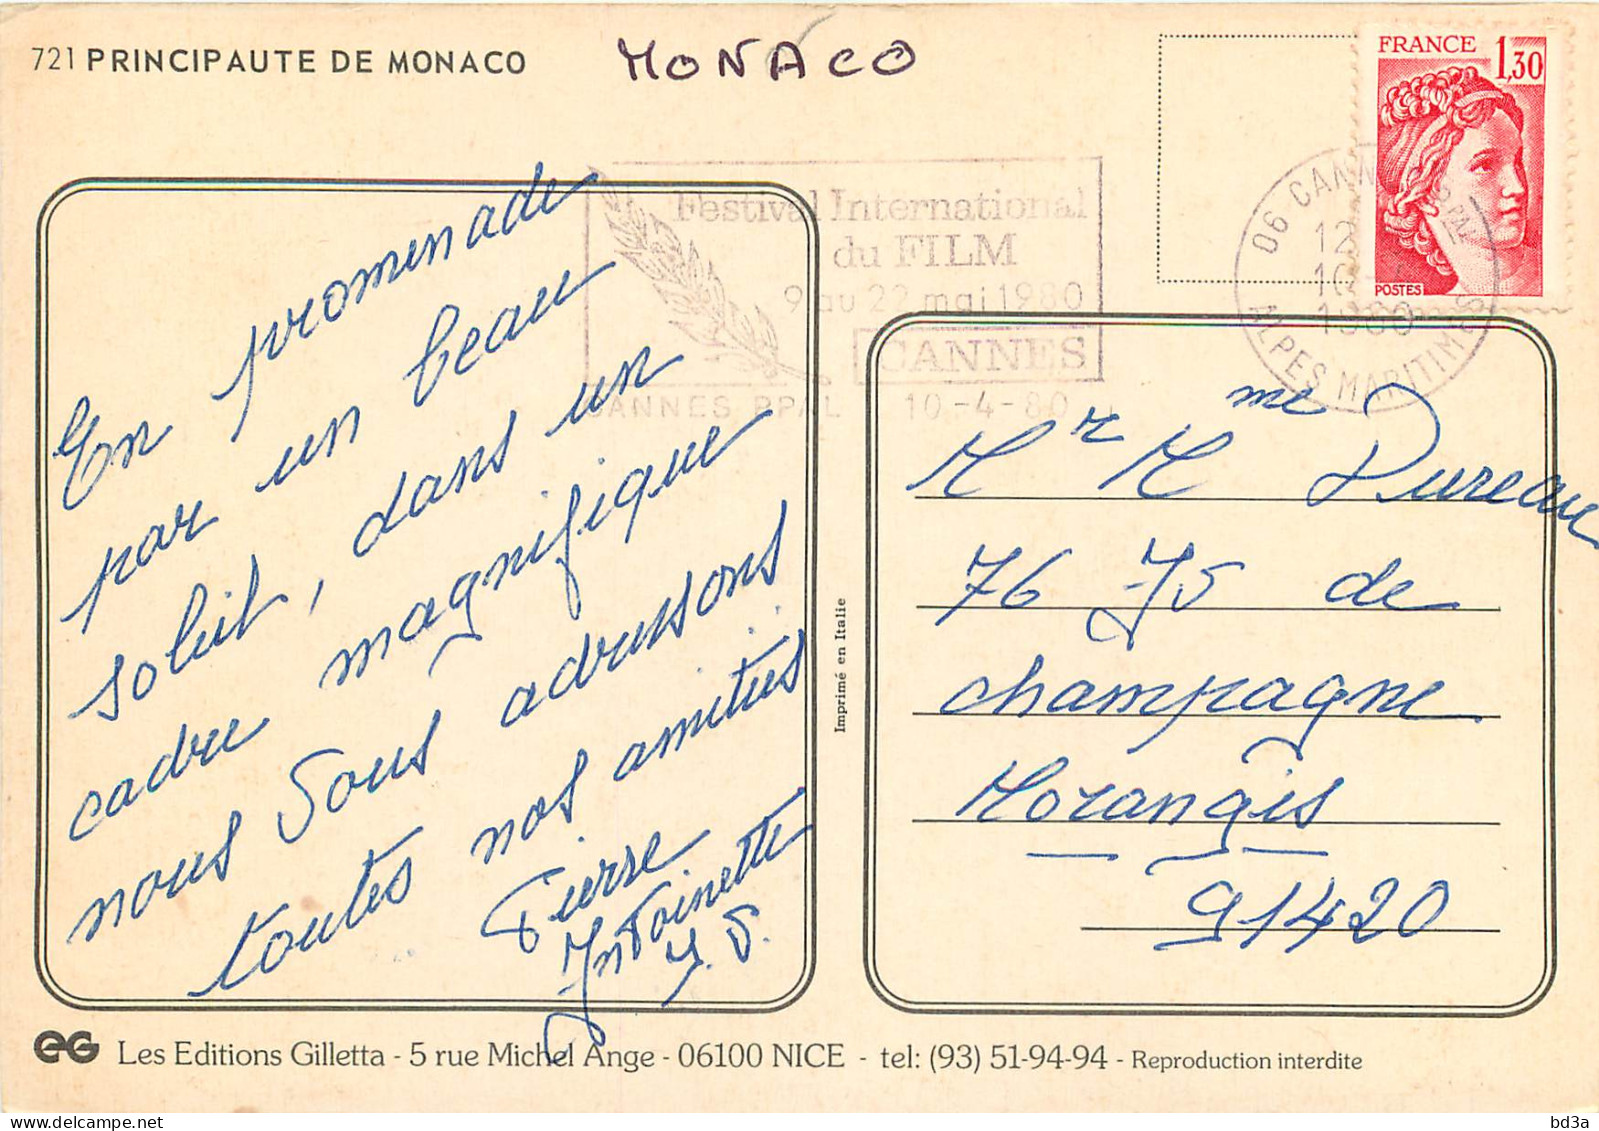 721 PRINCIPAUTE DE MONACO
MONACO
FRANCE 1,30
POSTES
Festival International
du FILM
9 au 22 mai 1980
CANNES
CANNES PPAL 10-4-80
06 CANNES PPAL
12
10-4
1980
ALPES MARITIMES
En promenade
par un beau
soleil, dans un
cadre magnifique
nous vous adressons
toutes nos amitiés
Pierre
Antoinette
Imprimé en Italie
Mr Mme Dureau
76 de
champagne
Morangis
91420
eG Les Editions Gilletta - 5 rue Michel Ange - 06100 NICE - tel: (93) 51-94-94 - Reproduction interdite
bd3a